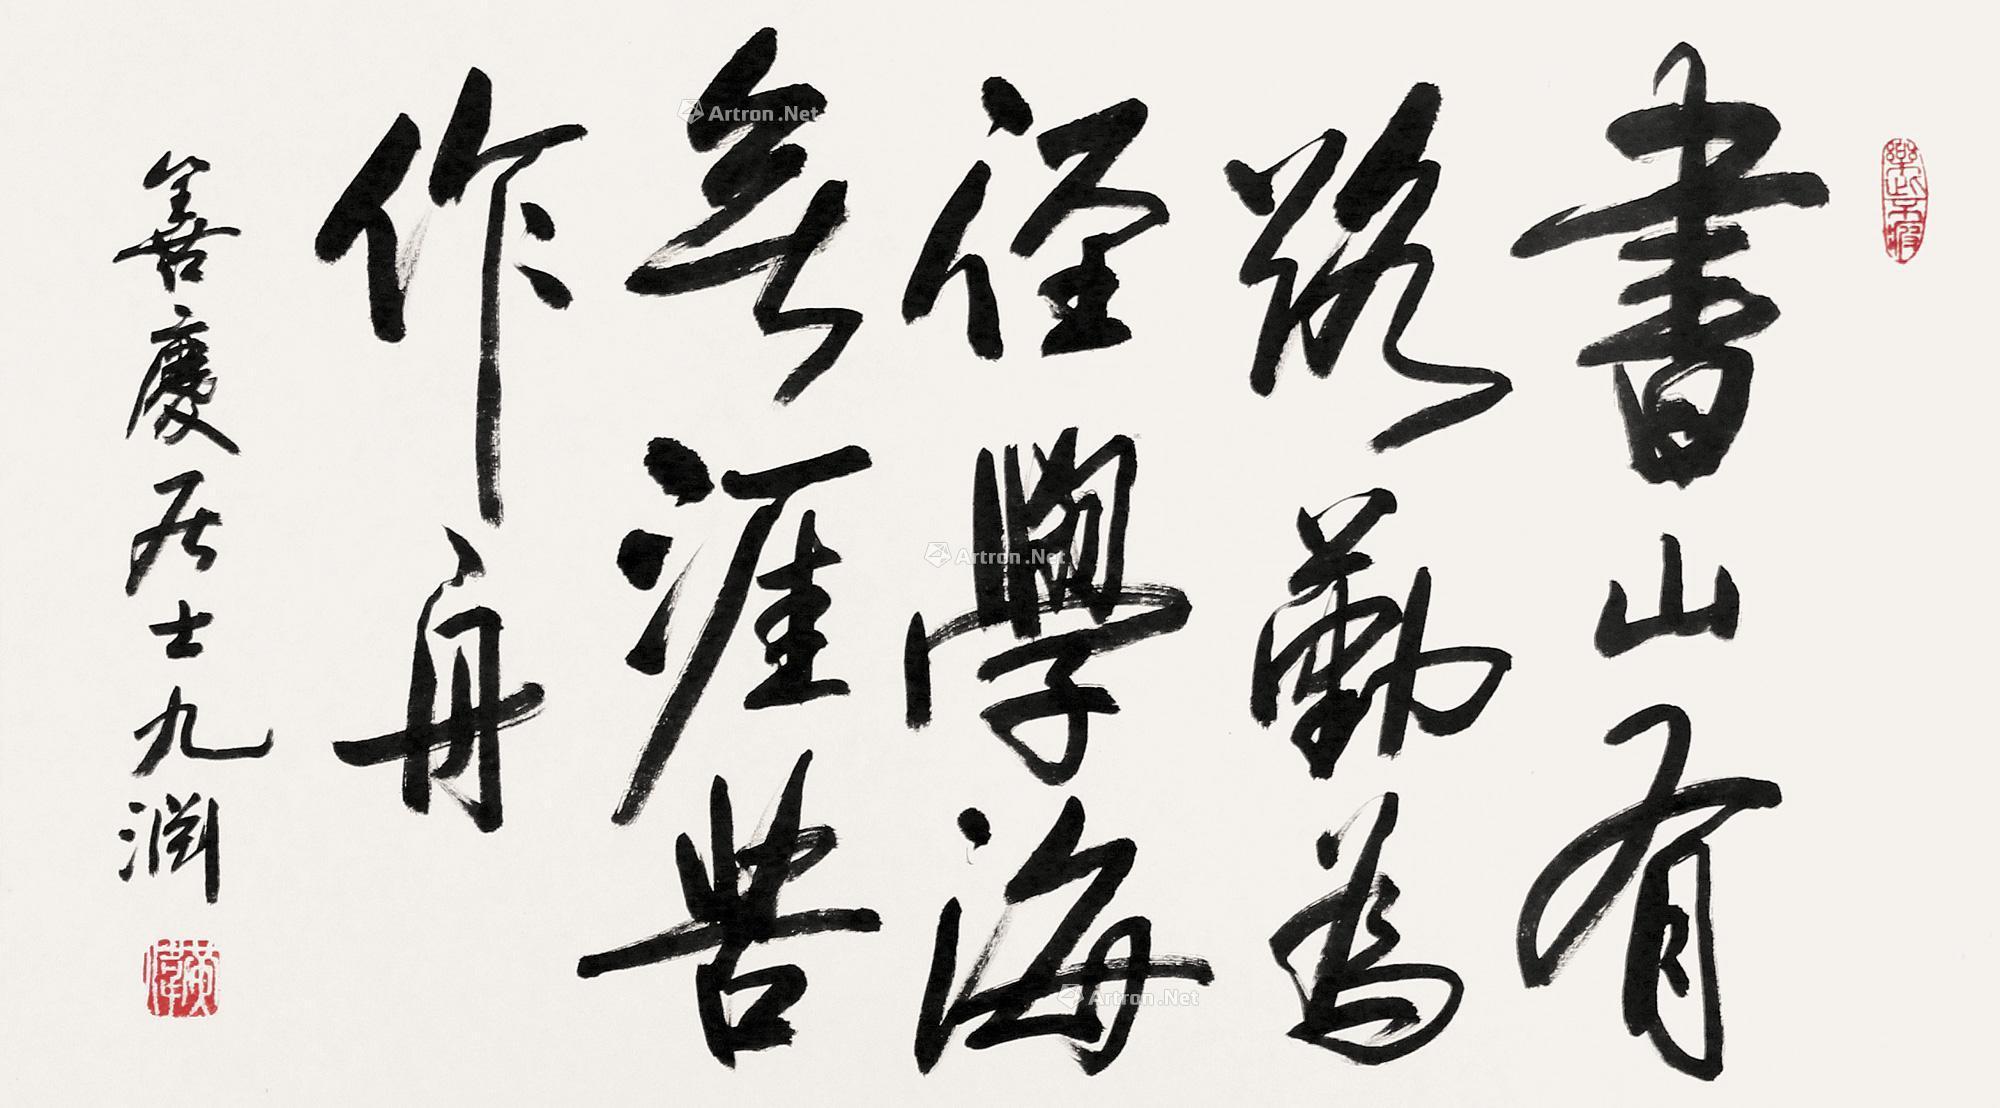 書山有
路勤為
徑學海
無涯苦
作舟
善慶居士九淵
Artron.Net
Artron.Net
Artron.Net